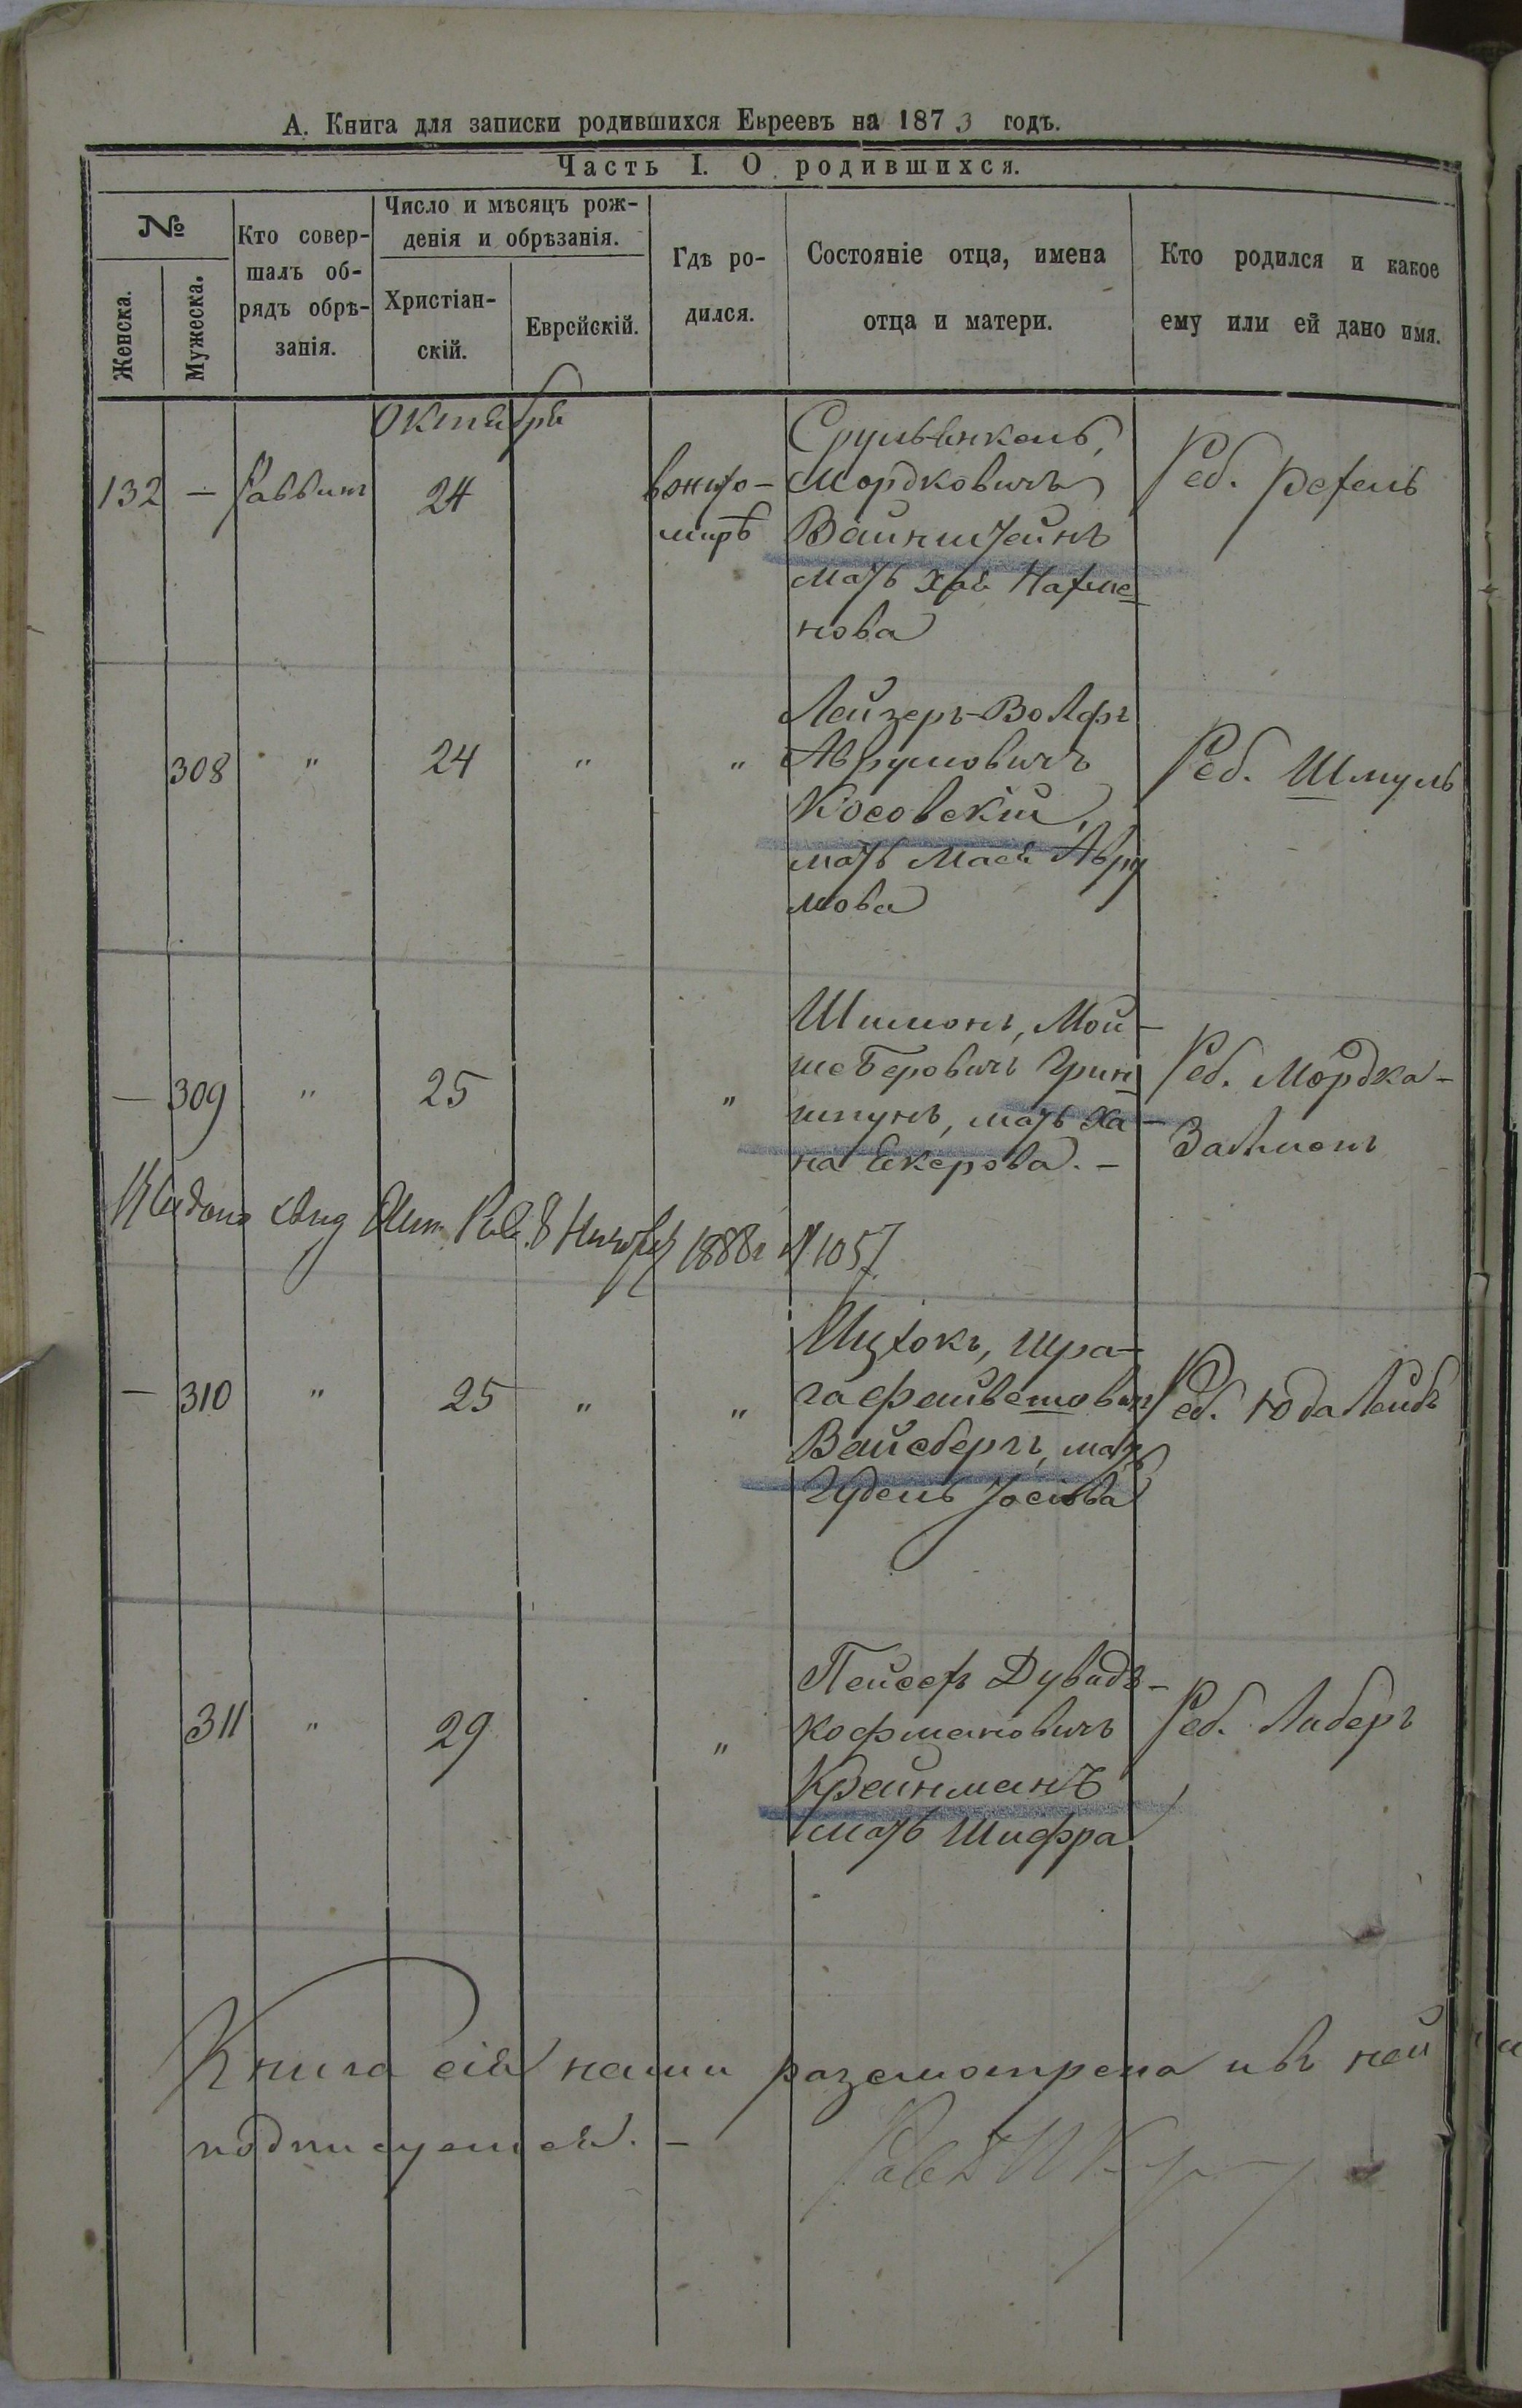 А. Книга для записки родившихся Евреевъ на 1873 годъ.
Часть I. О родившихся.
№
Женска.
Мужеска.
Кто совер-
шалъ об-
рядъ обрѣ-
занія.
Число и мѣсяцъ рож-
денія и обрѣзанія.
Христіан-
скій.
Еврейскій.
Гдѣ ро-
дился.
Состояніе отца, имена
отца и матери.
Кто родился и какое
ему или ей дано имя.
Октября
132 — Раввинъ 24 вжито-
мирѣ
Срулъ-Янкель,
Мордковичъ
Вайнштейнъ
мать Хая Нахма-
нова
Реб. Рехель
308 " 24 " "
Лейзеръ-Волфъ
Аврумовичъ
Косовскій,
мать Мася Авру
мова
Реб. Шмуль
— 309 " 25 "
Шимонъ, Мой-
шеБеровичъ Грин
шпунъ, мать Ха-
на Екерова. —
Реб. Мордко-
Залмонъ
1888г N 1057
— 310 " 25 " "
Ицхокъ, Шра-
гафайвешович
Вайсбергъ, мать
Гудель Іосіова
Реб. ЮдаЛейбъ
311 " 29 "
Пейсехъ Дувидъ-
кофмановичъ
Крайнманъ
мать Шифра
Реб. Либеръ
Книга сія нами разсмотрена ивъ ней
подписуемся. —